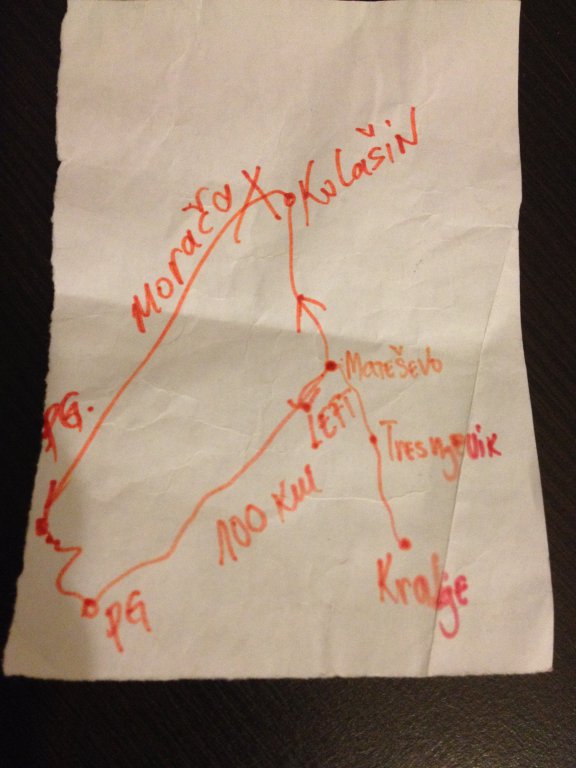 Kolašin
Morača
Mateševo
PG.
LEFT
Tresnjevik
100 KM
Kralje
PG